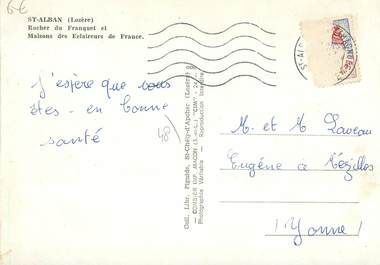 6€
ST-ALBAN (Lozère)
Rocher du Franquet et
Maisons des Eclaireurs de France.
J'espère que vous
êtes en bonne
santé
48
Coll. Libr. Pignide, St-Chély-d'Apcher (Lozère)
COMBIER IMP. MACON (S.-et-L.) "CIM"
Photographie Véritable - Reproduction Interdite
M. et M Laveau
Eugène à Mézilles
(Yonne)